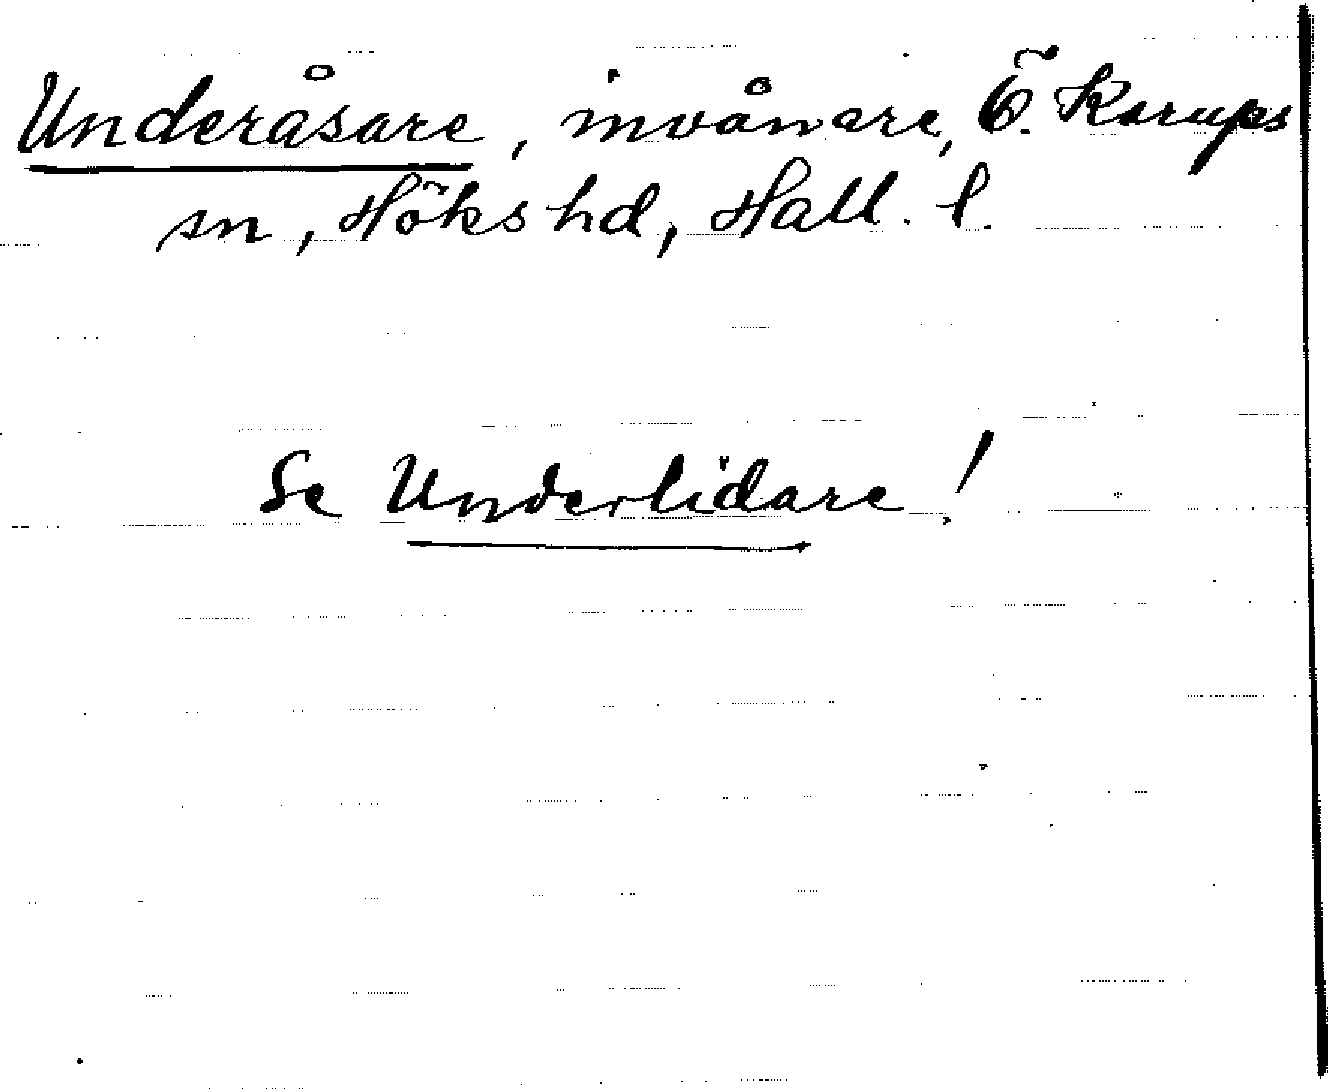 Underåsare, invånare, Ö. Karups
sn, Höks hd, Hall. l.
Se Underlidare!